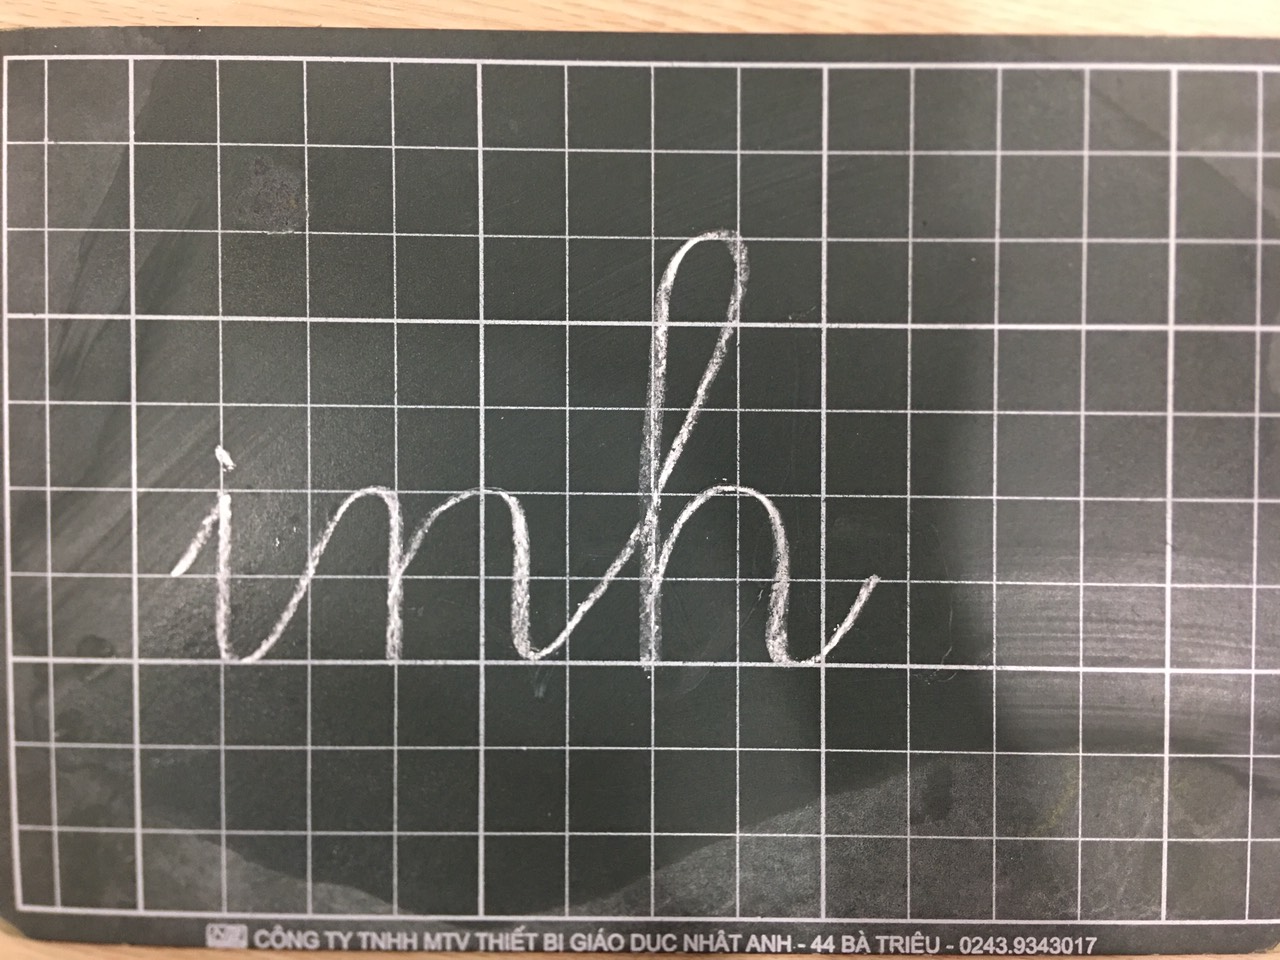 inh
CÔNG TY TNHH MTV THIẾT BỊ GIÁO DỤC NHẬT ANH - 44 BÀ TRIỆU - 0243.9343017